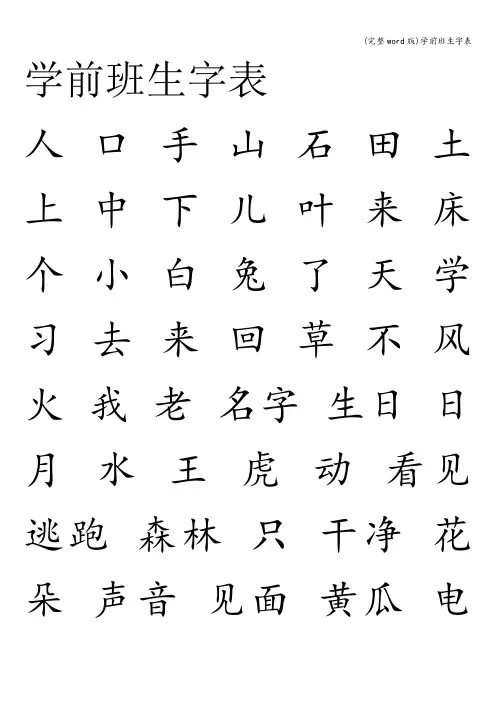 (完整word版)学前班生字表
学前班生字表
人 口 手 山 石 田 土
上 中 下 儿 叶 来 床
个 小 白 兔 了 天 学
习 去 来 回 草 不 风
火 我 老 名字 生日 日
月 水 王 虎 动 看见
逃跑 森林 只 干净 花
朵 声音 见面 黄瓜 电